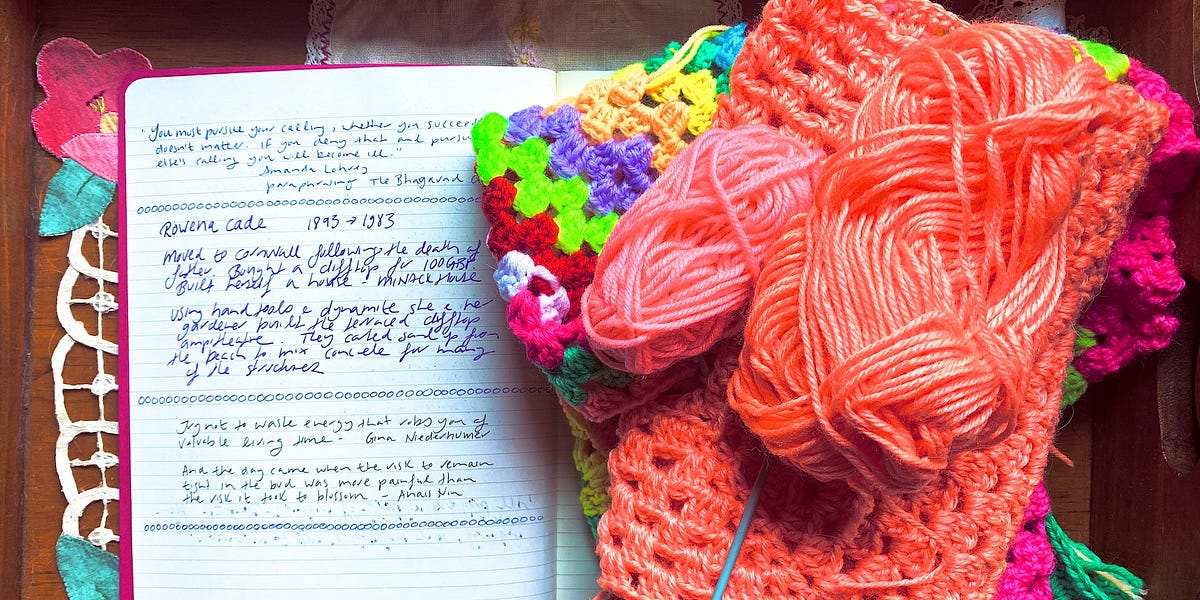 "You must pursue your calling, whether you succeed
doesn't matter. If you deny that and pursu
else's calling you will become ill."
Amanda Lohrey
paraphrasing The Bhagavad
Rowena Cade 1893 → 1983
moved to cornwall following the death of
father. Bought a clifftop for 100GBP.
Built herself a house - MINACK HOUSE
using hand tools & dynamite she & her
gardener built the terraced clifftop
ampitheatre. They carted sand up from
the beach to mix concrete for many
of the structures
Try not to waste energy that robs you of
valuable living time - Gina Niederhumer
And the day came when the risk to remain
tight in the bud was more painful than
the risk it took to blossom - Anais Nin